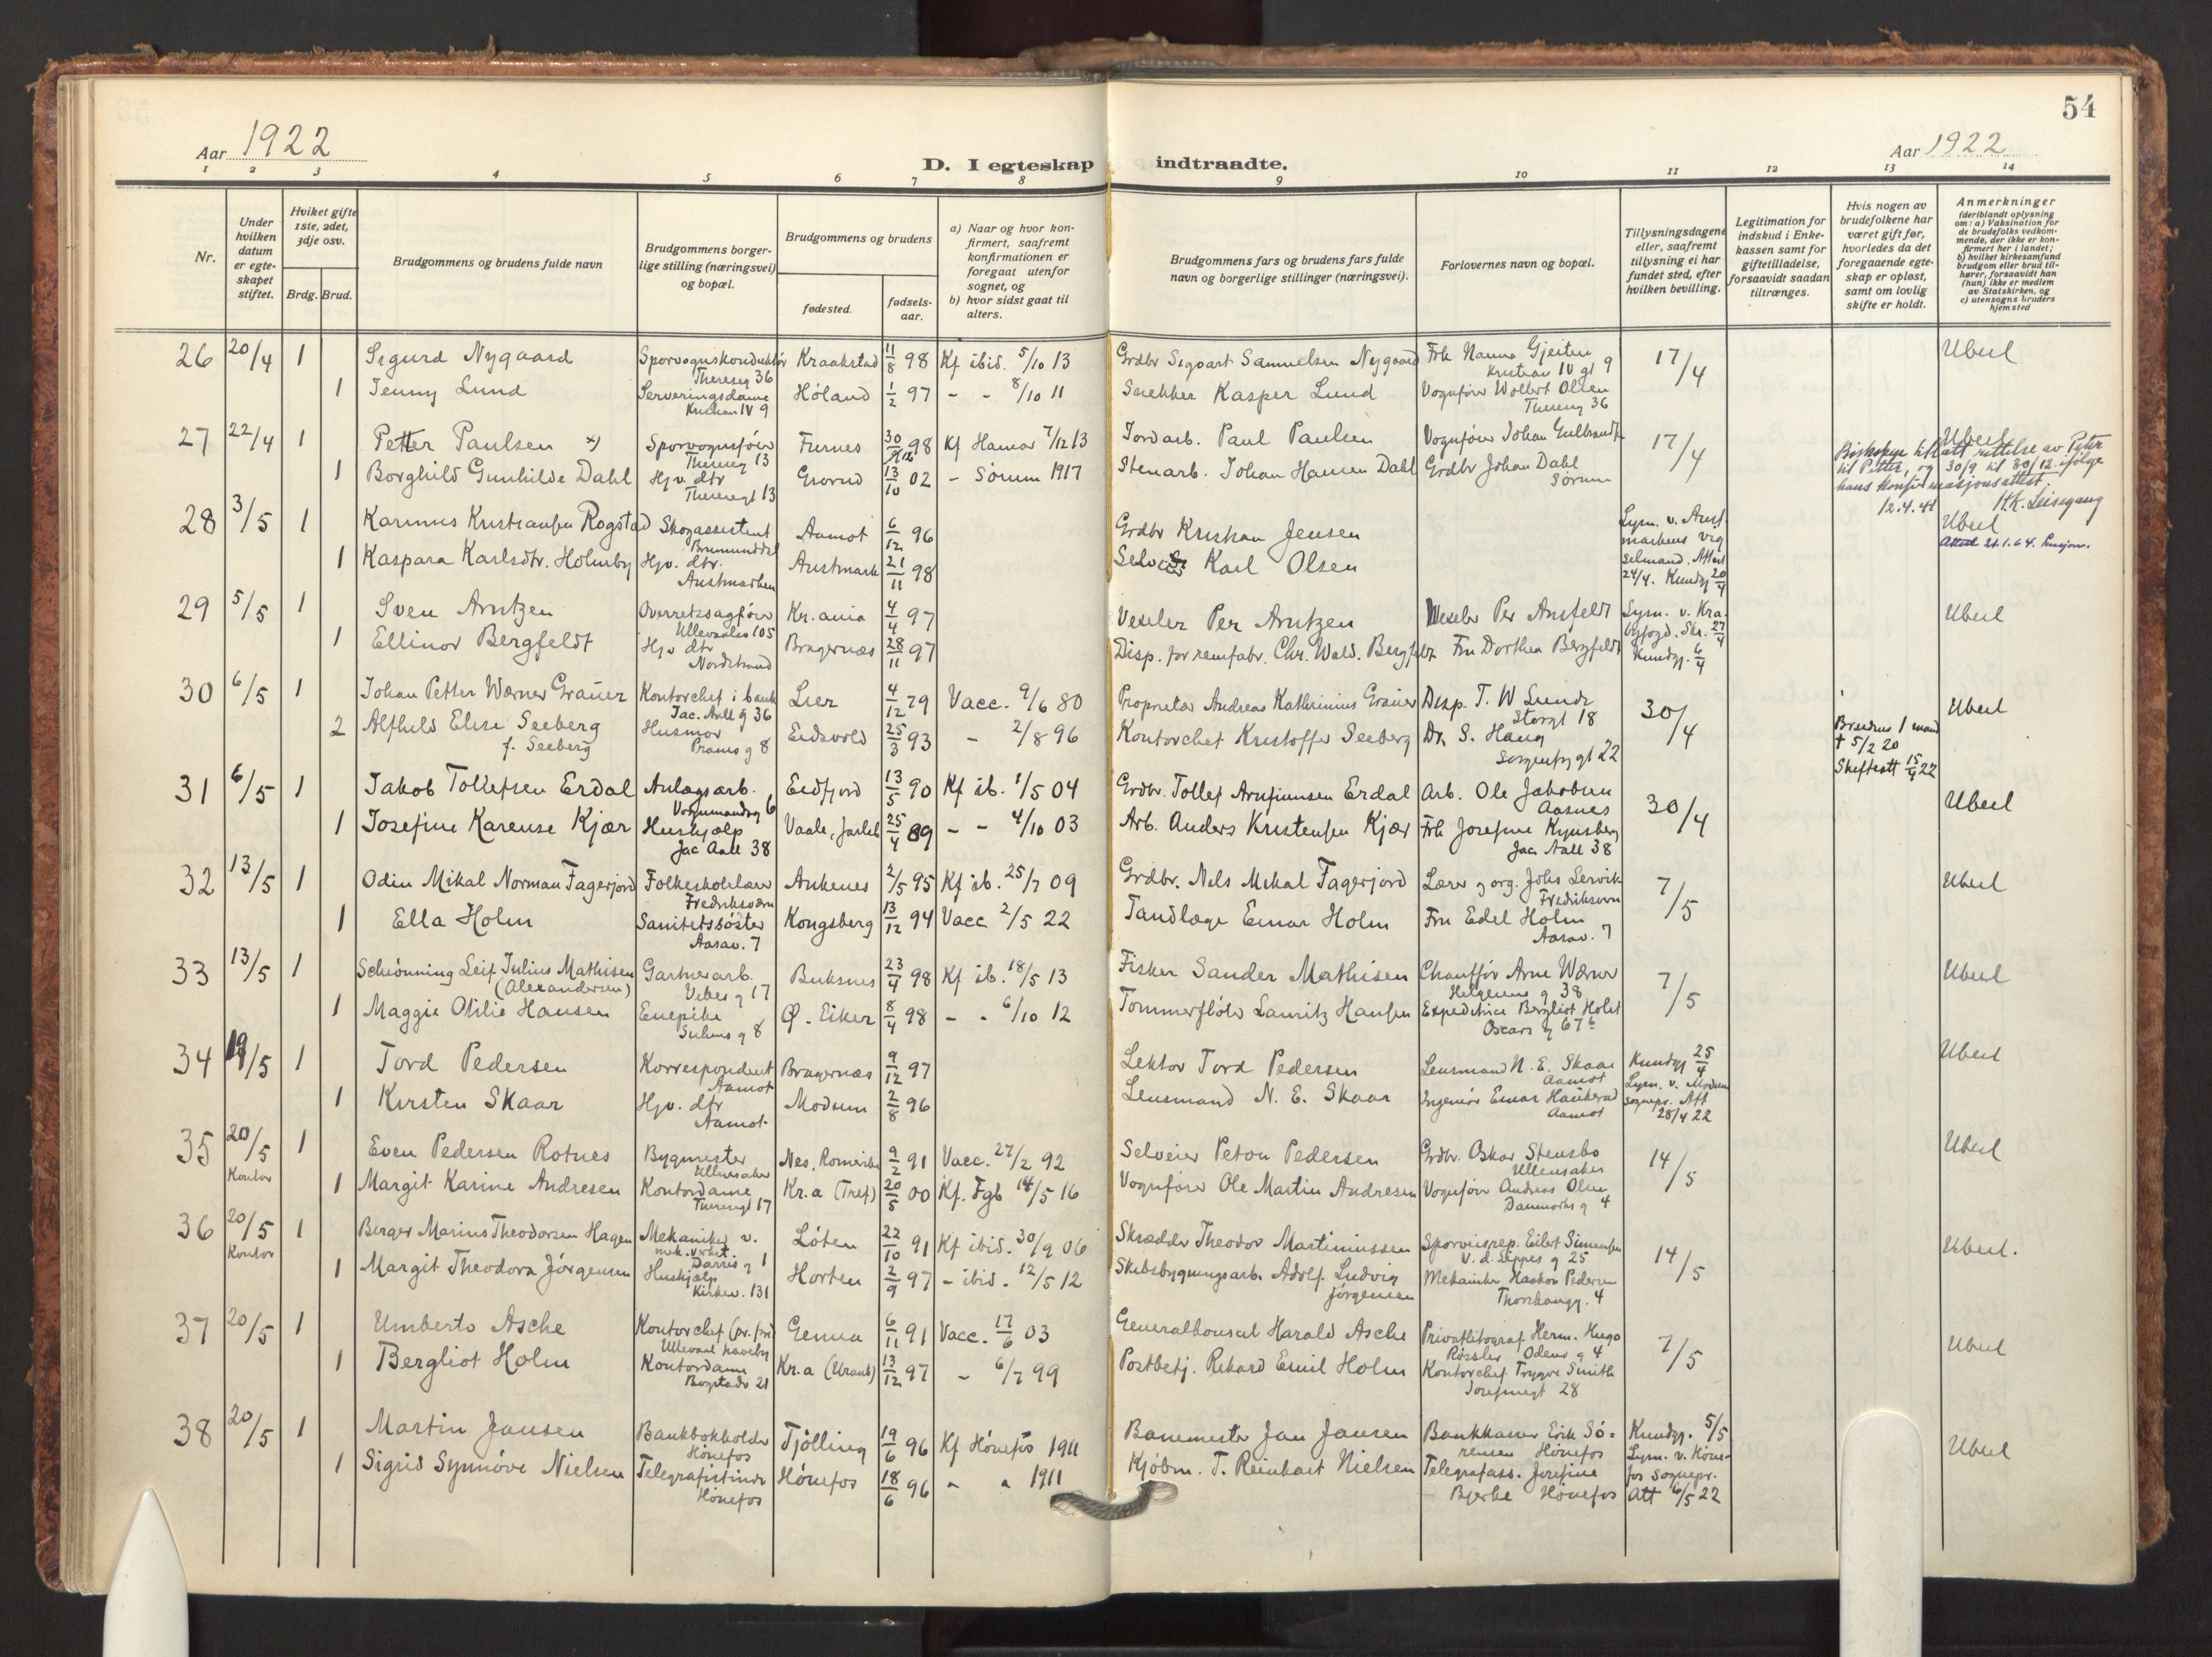 54
Aar 1922
D. I egteskap indtraadte.
Aar 1922
1 2 3 4 5 6 7 8 9 10 11 12 13 14
Nr.
Under hvilken datum er egteskapet stiftet.
Hviket gifte 1ste, 2det, 3dje osv.
Brdg. Brud.
Brudgommens og brudens fulde navn
Brudgommens borgerlige stilling (næringsvei) og bopæl.
Brudgommens og brudens
fødested.
fødselsaar.
a) Naar og hvor konfirmert, saafremt konfirmationen er foregaat utenfor sognet, og
b) hvor sidst gaat til alters.
Brudgommens fars og brudens fars fulde navn og borgerlige stillinger (næringsvei).
Forlovernes navn og bopæl.
Tillysningsdagene eller, saafremt tillysning ei har fundet sted, efter hvilken bevilling.
Legitimation for indskud i Enkekassen samt for giftetilladelse, forsaavidt saadan tiltrænges.
Hvis nogen av brudefolkene har været gift før, hvorledes da det foregaaende egteskap er opløst, samt om lovlig skifte er holdt.
Anmerkninger (deriblandt oplysning om: a) Vaksination for de brudefolks vedkommende, der ikke er konfirmert her i landet; b) hvilket kirkesamfund brudgom eller brud tilhører, forsaavidt han (hun) ikke er medlem av Statskirken, og c) utensogns bruders hjemsted
26 20/4 1 Sigurd Nygaard Sporvognskonduktør Thereseg 36 Kraakstad 11/8 98 Kf ibid. 5/10 13 Grdbr Sigvart Samuelsen Nygaard Frk Nanna Gjeiten Kristian IV gt 9 17/4 Ubesl
1 Jenny Lund Serveringsdame Kristian IV 9 Høland 1/2 97 - - 8/10 11 Snekker Kasper Lund Vognfører Wollert Olsen Thereseg 36
27 22/4 1 Petter Paulsen x) Sporvognsfører Thereseg 13 Furnes 30/12 98 Kf Hamar 7/12 13 Jordarb. Paul Paulsen Vognfører Johan Gulbrandsen 17/4 Ubesl
Biskopen tillatt rettelse av Peter til Petter, og 30/9 til 30/12 ifølge hans konfirmasjonsattest. 12.4.41 H.K. Leisegang
1 Borghild Gunhilde Dahl Hj.v. dtr Theresegt 13 Grorud 13/10 02 - Sørum 1917 Stenarb. Johan Hansen Dahl Grdbr Johan Dahl Sørum
28 3/5 1 Karinus Kristiansen Rogstad Skogassistent Brumunddal Aamot 6/12 96 Grdbr Kristian Jensen Lysn. v. Austmarkens Attest 24/4. Kundgj 20/4 Ubesl
Attest 21.1.64. Pensjon.
1 Kaspara Karlsdtr. Holmby Hjv. dtr. Austmarken Austmark 21/11 98 Selveier Karl Olsen
29 5/5 1 Sven Arntzen Overretssagfører Ullevaalsv 105 Kr.ania 4/4 97 Veseler Per Arntzen Lysn. v. Kra. byfogd. Skr. 27/4 Kundgj. 6/4 Ubesl
1 Ellinor Bergfeldt Hjv dtr Nordstrand Bragernæs 28/11 97 Disp. for remfabr. Chr. Wald. Bergfeldt Fru Dorthea Bergfeldt
30 6/5 1 Johan Petter Wærner Graüer Kontorchef i bank Jac. Aall g 36 Lier 4/12 79 Vacc. 9/6 80 Proprietær Andreas Kathrinius Graüer Disp. T. W Lundh Storgt 18 30/4 Ubesl
2 Alfhild Elise Seeberg f. Seeberg Husmor Prams g 8 Eidsvold 25/3 93 - 2/8 96 Kontorchef Kristoffer Seeberg Dr. S. Haug Sorgenfrygt 22
Brudens 1 mand † 5/2 20 Skifteatt 15/4 22
31 6/5 1 Jakob Tollefsen Erdal Anlagsarb. Vognmandsg 6 Eidfjord 13/5 90 Kf ib. 1/5 04 Grdbr. Tollef Arnfinnsen Erdal Arb. Ole Jakobsen Aasnes 30/4 Ubesl
1 Josefine Karense Kjær Hushjælp Jac Aall 38 Vaale, Jarlsb 25/4 89 - - 4/10 03 Arb. Anders Kristensen Kjær Frk Josefine Kynsberg Jac Aall 38
32 13/5 1 Odin Mikal Norman Fagerjord Folkeskolelærer Fredriksværn Ankenes 2/5 95 Kf ib. 25/7 09 Grdbr. Nils Mikal Fagerjord Lærer og org. Johs Lervik Fredriksvern 7/5 Ubesl
1 Ella Holm Sanitetssøster Aasav. 7 Kongsberg 13/12 94 Vacc 2/5 22 Tandlæge Einar Holm Fru Edel Holm Aasav. 7
33 13/5 1 Schiønning Leif Julius Mathisen (Alexandersen) Gartnerarb. Vibes g 17 Buksnes 23/4 98 Kf ib. 18/5 13 Fisker Sander Mathisen Chauffør Arne Wærner Helgesens g 38 7/5 Ubesl
1 Maggie Otilie Hansen Enepike Ø. Eiker 8/4 98 - - 6/10 12 Tømmerfløter Lauritz Hansen Expeditrice Bergliot Holst Oscars g 67b
34 19/5 1 Tord Pedersen Korrespondent Aamot Bragernæs 9/12 97 Lektor Tord Pedersen Lensmand N. E. Skaar Aamot Kundgj 25/4 Lysn. v. Modum sognepr. Att 28/4 22 Ubesl
1 Kirsten Skaar Hjv. dtr Aamot Modum 2/8 96 Lensmand N. E. Skaar Ingeniør Einar Haukerud Aamot
35 20/5 Kontor 1 Even Pedersen Rotnes Bygmester Ullensaker Nes, Romerike 9/2 91 Vacc. 27/2 92 Selveier Peton Pedersen Grdbr. Oskar Stensbo Ullensaker 14/5 Ubesl
1 Margit Karine Andresen Kontordame Theresegt 17 Kr.a (Tref) 20/5 00 Kf. Fgb 14/5 16 Vognfører Ole Martin Andresen Vognfører Andreas Olsen Danmarks g 4
36 20/5 Kontor 1 Berger Marius Theodorsen Hagen Mekaniker v. mek. verkst. Darres g 1 Løten 22/10 91 Kf ibid. 30/9 06 Skrædder Theodor Martiniussen Sporveisrep. Eilert Simensen V. d. Lippes g 25 14/5 Ubesl.
1 Margit Theodora Jörgensen Hushjælp Kirkev. 131 Horten 2/9 97 - ibid. 12/5 12 Skibsbygningsarb. Adolf Ludvig Jörgensen Mekaniker Haakon Pedersen Thorshaugg. 4
37 20/5 1 Umberto Asche Kontorchef (pr. frv) Ullevaal haveby Genua 6/11 91 Vacc. 17/6 03 Generalkonsul Harald Asche Privatlitograf Herm. Hugo Røssler Odens g 4 7/5 Ubesl
1 Bergliot Holm Kontordame Bogstadv 21 Kr.a (Uranb) 13/12 97 - 6/7 99 Postbetj. Rikard Emil Holm Kontorchef Trygve Smith Josefinegt 28
38 20/5 1 Martin Jansen Bankbokholder Hönefos Tjölling 19/6 96 Kf Hönefos 1911 Banemester Jan Jansen Bankkasser Erik Sörensen Hönefos Kundgj. 5/5 Lysn. v. Hönefos sognepr. Att 6/5 22 Ubesl
1 Sigrid Synnöve Nielsen Telegrafistinde Hönefos Hönefos 18/6 96 - - 1911 Kjöbm. T. Reinhart Nielsen Telegrafass. Josefine Bjerke Hönefos